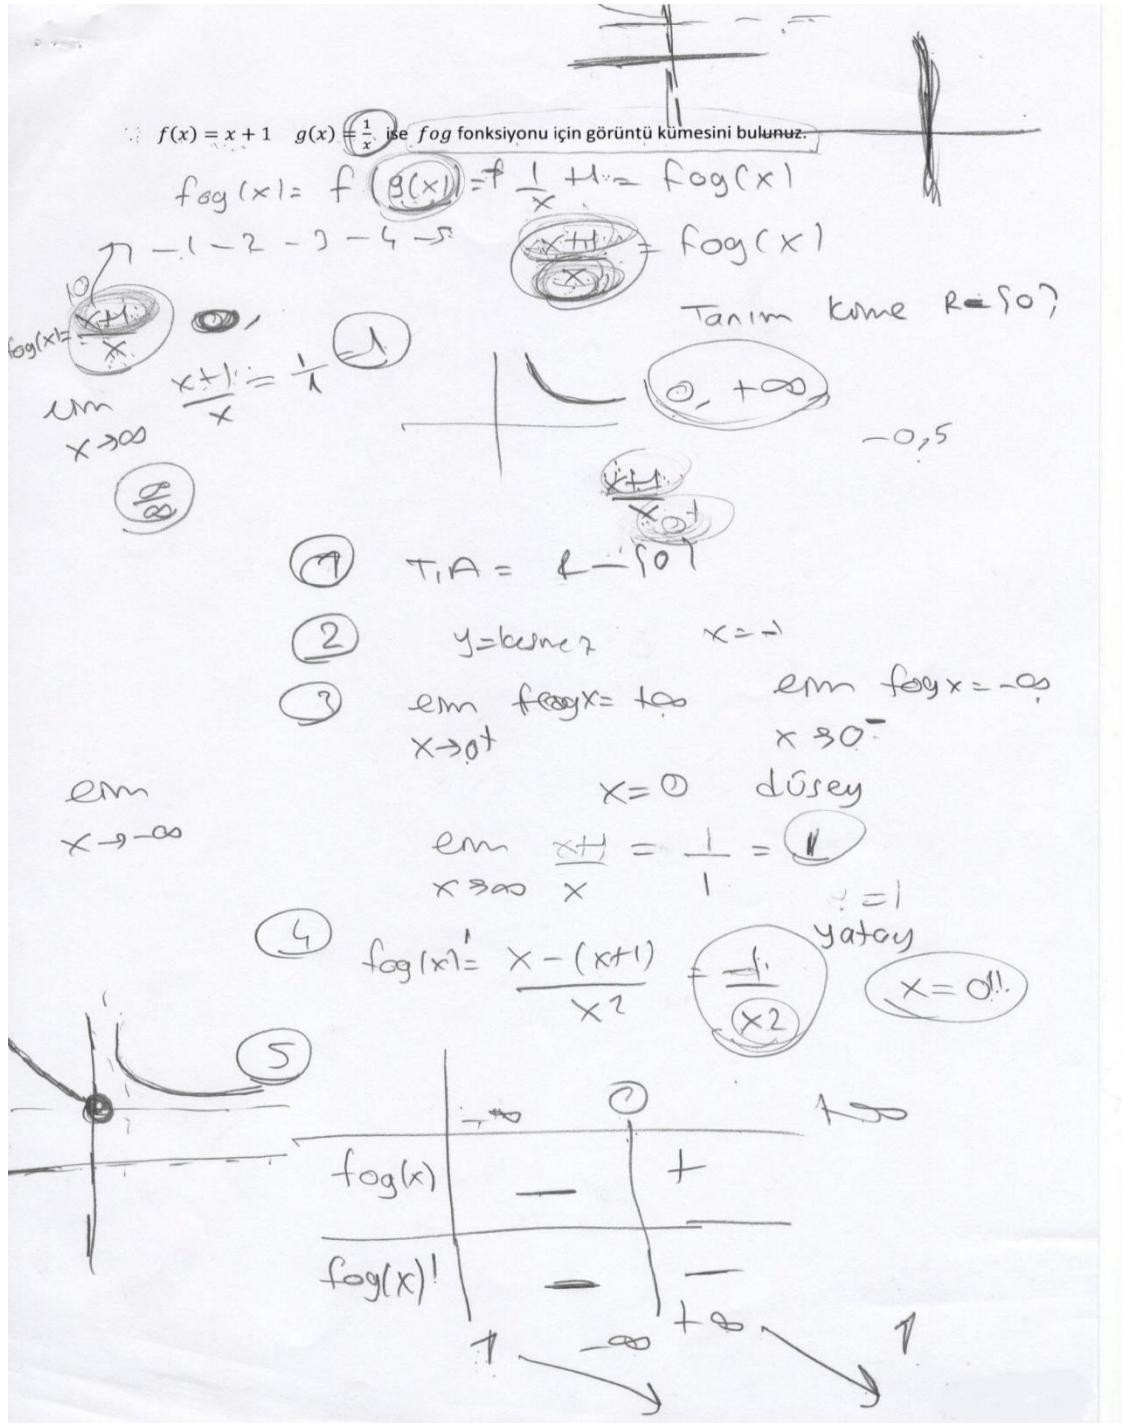 f(x) = x + 1 g(x) = 1/x ise fog fonksiyonu için görüntü kümesini bulunuz.
fog(x) = f(g(x)) = 1/x + 1 = fog(x)
-1 -2 -3 -4 -5
x+1/x = fog(x)
Tanım küme R-{0}
fog(x) = x+1/x
x+1/x = 1/1 = 1
lim x→∞
0, +∞
-0,5
∞/∞
x+1/x 0+
1 T.A = R-{0}
2 y=kesmez x=-1
3 lim x→0+ fogx = +∞ lim x→0- fogx = -∞
x=0 düşey
lim x→-∞
lim x→∞ x+1/x = 1/1 = 1
=1 yatay
4 fog(x)' = x-(x+1)/x2 = -1/x2 x=0!!
5
-∞ 0 +∞
fog(x) - +
fog(x)' - -
1 -∞ +∞ 1